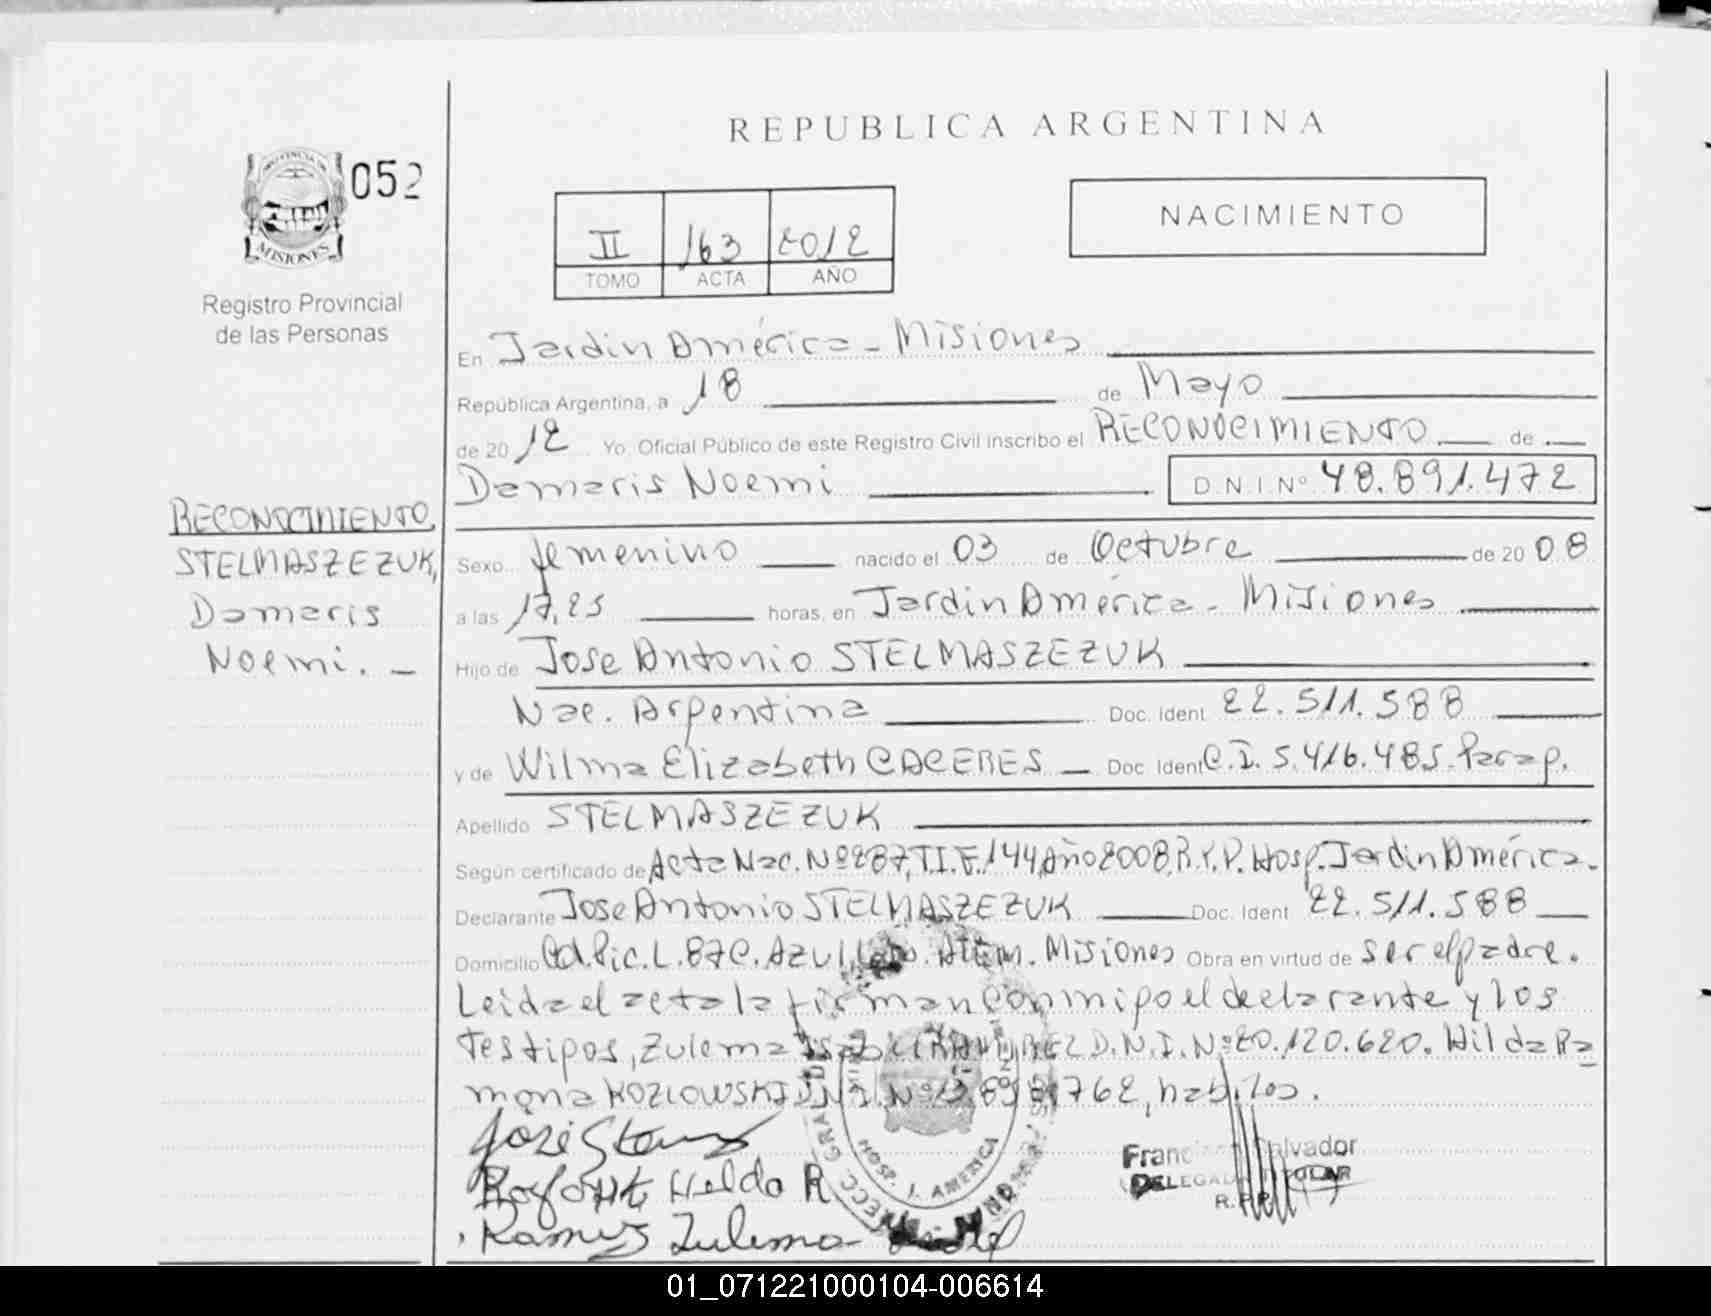 REPUBLICA ARGENTINA
052
NACIMIENTO
II 163 2012
TOMO ACTA AÑO
MISIONES
Registro Provincial
de las Personas
En Jardin América - Misiones
República Argentina, a 18 de Mayo
de 20 12 Yo. Oficial Público de este Registro Civil inscribo el RECONOCIMIENTO de
Damaris Noemi D.N.I.Nº 48.891.472
RECONOCIMIENTO
STELMASZEZUK,
Damaris
Noemi. -
Sexo femenino nacido el 03 de Octubre de 20 08
a las 17,25 horas, en Jardin América - Misiones
Hijo de Jose Antonio STELMASZEZUK
Nac. Argentina Doc. Ident. 22.511.588
y de Wilma Elizabeth CACERES - Doc Ident C.I. 5.416.485. Parag.
Apellido STELMASZEZUK
Según certificado de Acta Nac. Nº 287, T.I.F. 144, Año 2008, R.P.P. Hosp. Jardin América.
Declarante Jose Antonio STELMASZEZUK Doc. Ident 22.511.588
Domicilio Cd. Pic. L. 87 C. Azul, Alem. Misiones Obra en virtud de ser el padre.
Leida el acta la firman conmigo el declarante y los
testigos, Zulema RAMIREZ D.N.I. Nº 20.120.620. Hilda Ra
mona KOZLOWSKI D.N.I. Nº 762, habiles.
José
Hilda R
Ramirez Zulema
HOSP. J. AMERICA
Salvador
DELEGADO TITULAR
R.P.P.
01_071221000104-006614